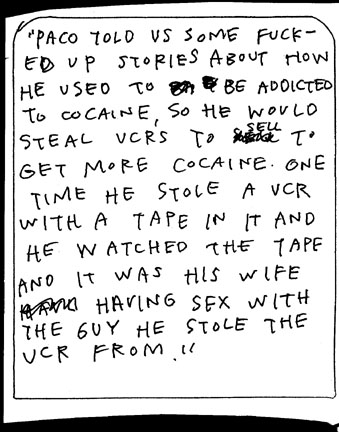 "PACO TOLD US SOME FUCK-
ED UP STORIES ABOUT HOW
HE USED TO BE ADDICTED
TO COCAINE, SO HE WOULD
STEAL VCRS TO SELL TO
GET MORE COCAINE. ONE
TIME HE STOLE A VCR
WITH A TAPE IN IT AND
HE WATCHED THE TAPE
AND IT WAS HIS WIFE
HAVING SEX WITH
THE GUY HE STOLE THE
VCR FROM."